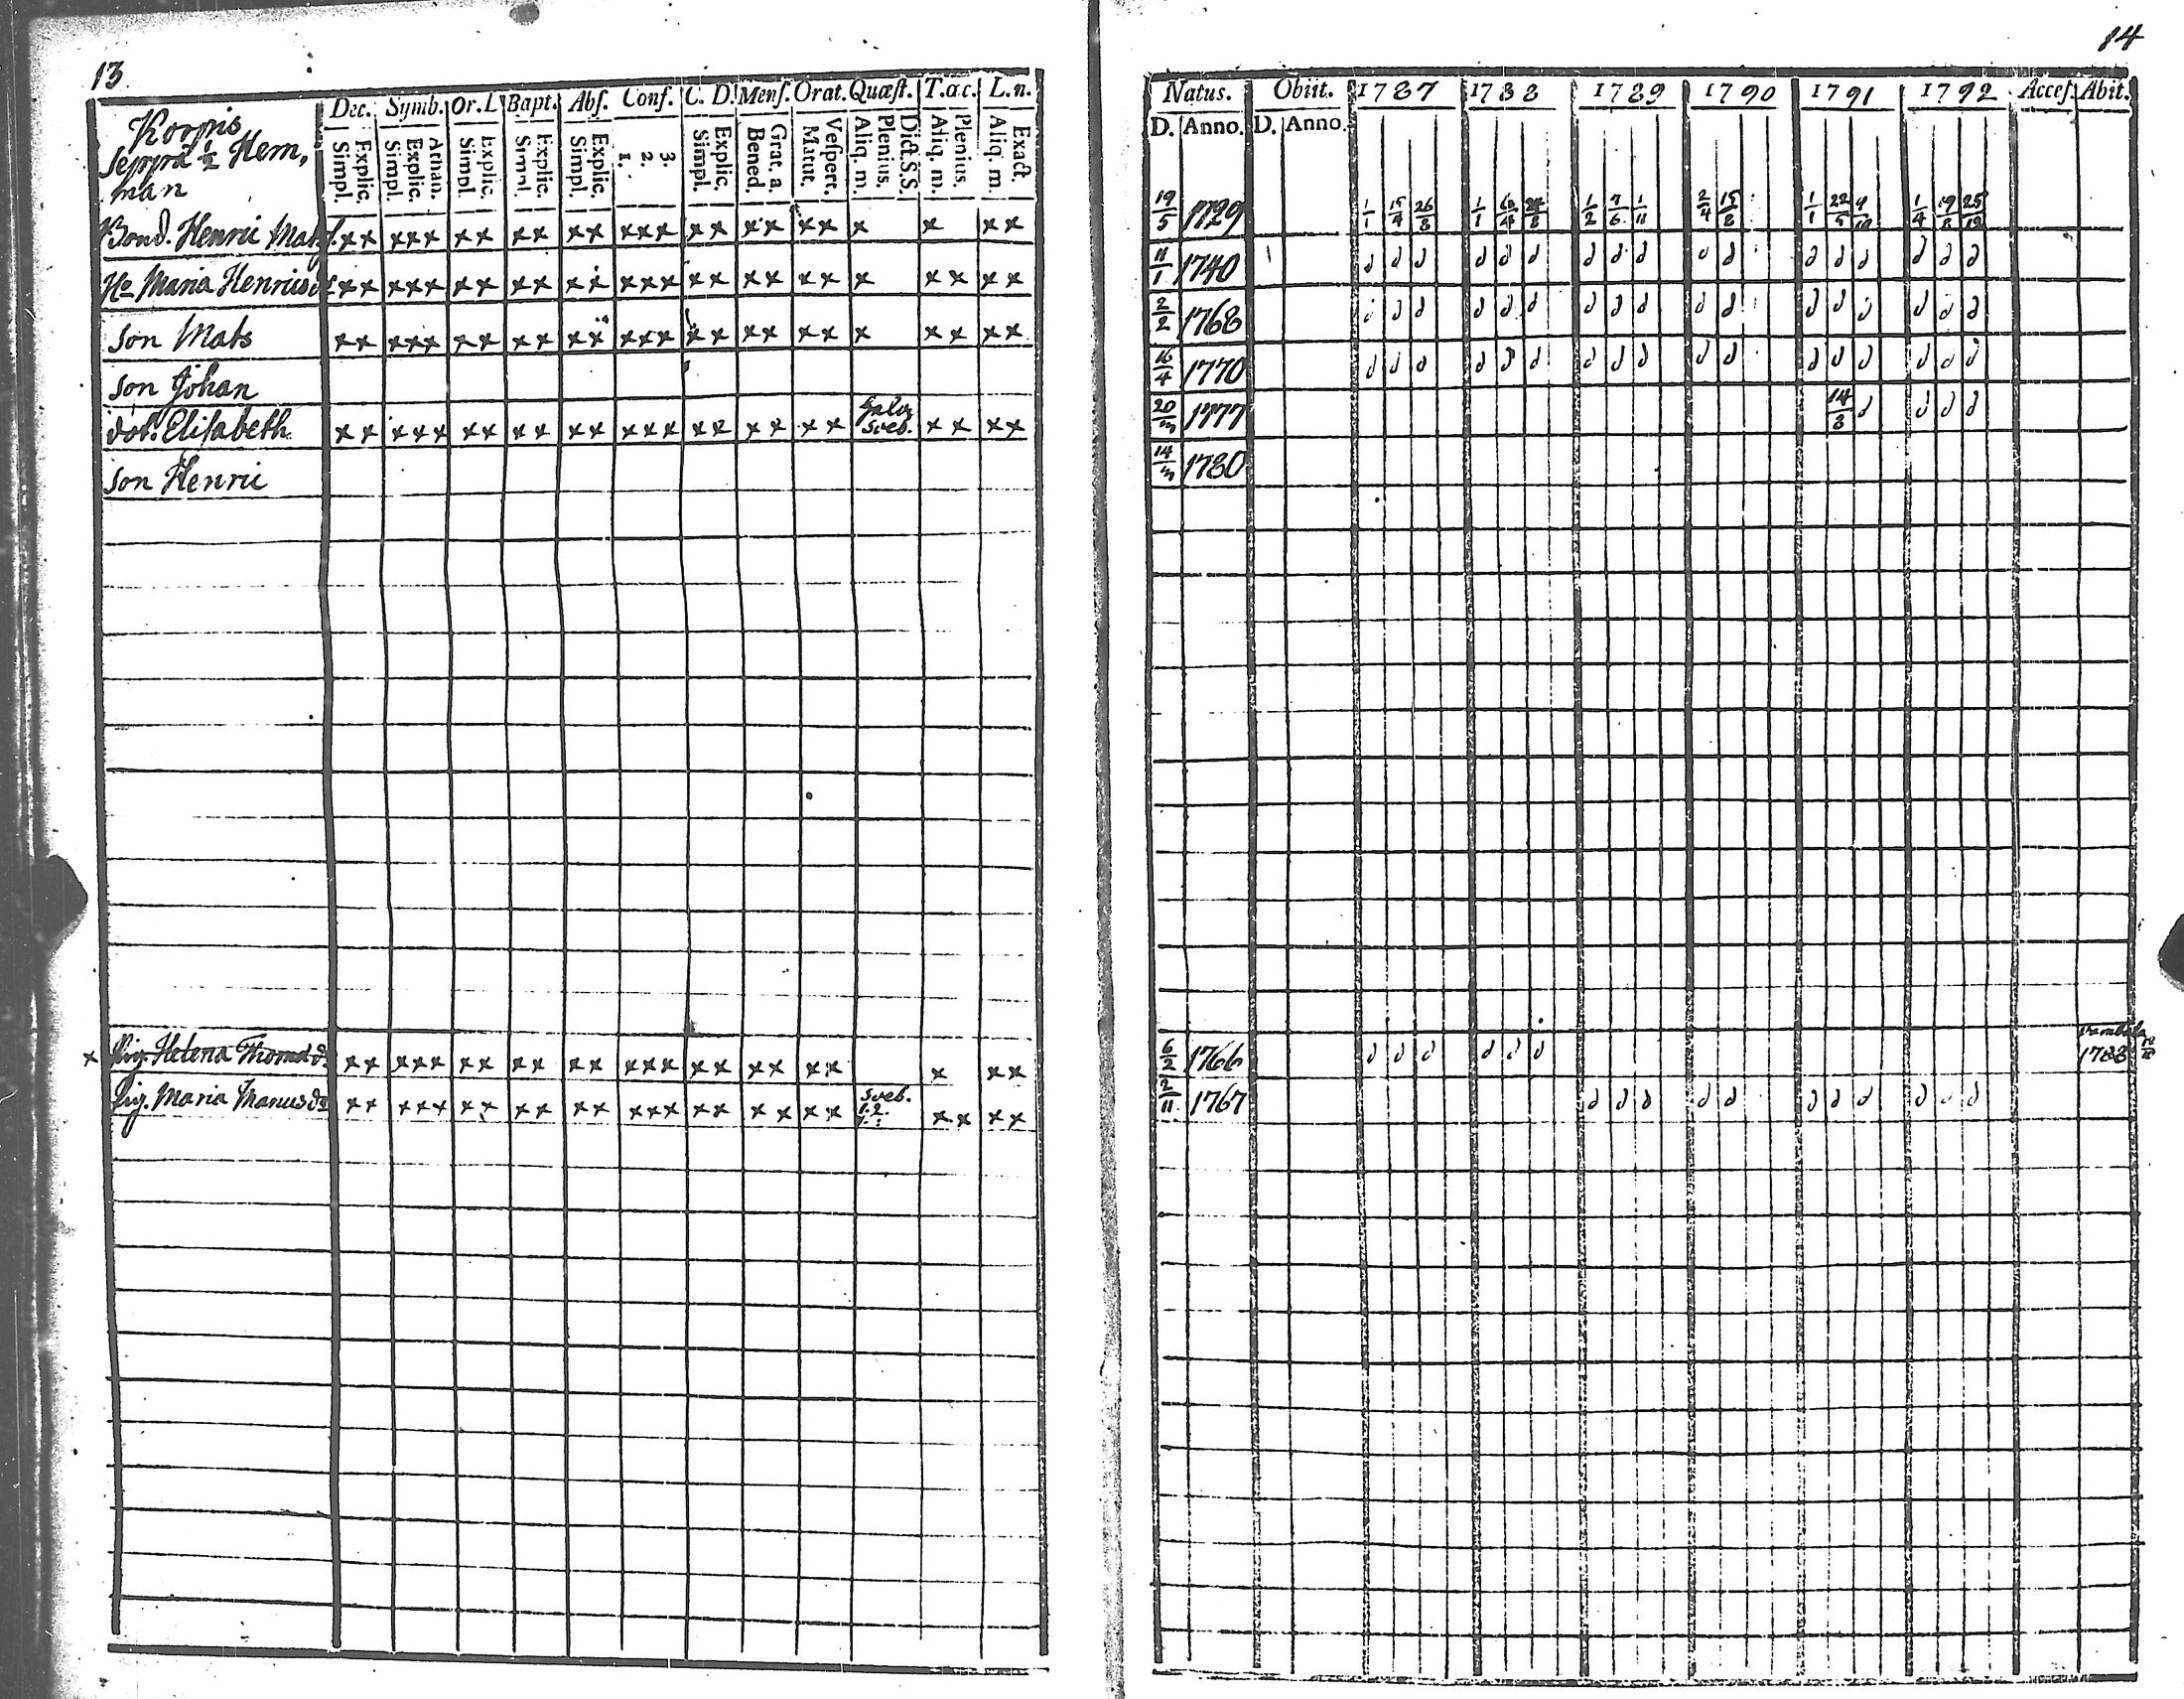 13.
Korpis
Seppä ½ Hem,
man
Dec. Symb. Or.L Bapt. Abſ. Conf. C. D. Menſ. Orat. Quæſt. T.œ.c. L.n.
Simpl. Explic. Simpl. Explic. Athan. Simpl. Explic. Simpl. Explic. Simpl. Explic. 1. 2. 3. Simpl. Explic. Bened. Grat. a Matut. Veſpert. Aliq. m. Plenius. Dict.S.S. Aliq. m. Plenius. Aliq. m. Exact.
Bond. Henric Matsſ. ×× ××× ×× ×× ×× ××× ×× ×× ×× × × ××
Ho Maria Henricsd ×× ××× ×× ×× ×× ××× ×× ×× ×× × ×× ××
Son Mats ×× ××× ×× ×× ×× ××× ×× ×× ×× × ×× ××
Son Johan
dot. Eliſabeth ×× ××× ×× ×× ×× ××× ×× ×× ×× Sveb. ×× ××
Son Henric
× Pig. Helena Thomad. ×× ××× ×× ×× ×× ××× ×× ×× ×× × ××
Pig. Maria Manusd. ×× ××× ×× ×× ×× ××× ×× ×× ×× Sveb. 1.2. ×× ××
14
Natus. Obiit. 1787 1788 1789 1790 1791 1792 Acceſ. Abit.
D. Anno. D. Anno.
19/5 1729 1/1 15/4 26/8 1/1 1/2 7/6 1/11 2/4 15/8 1/1 22/5 9/10 1/4 19/8 25/12
11/1 1740
2/2 1768
16/4 1770
20/3 1777 14/8
14/3 1780
6/2 1766 1788
2/11 1767